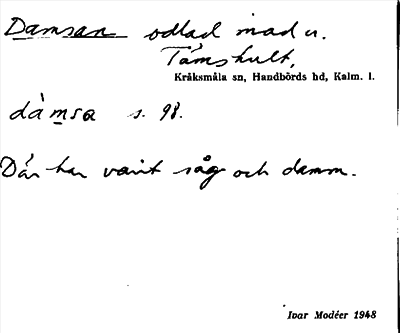 Damsan odlad mad u.
Tåmshult,
Kråksmåla sn, Handbörds hd, Kalm. l.
dàmsa s. 98.
Där har varit såg och damm.
Ivar Modéer 1948